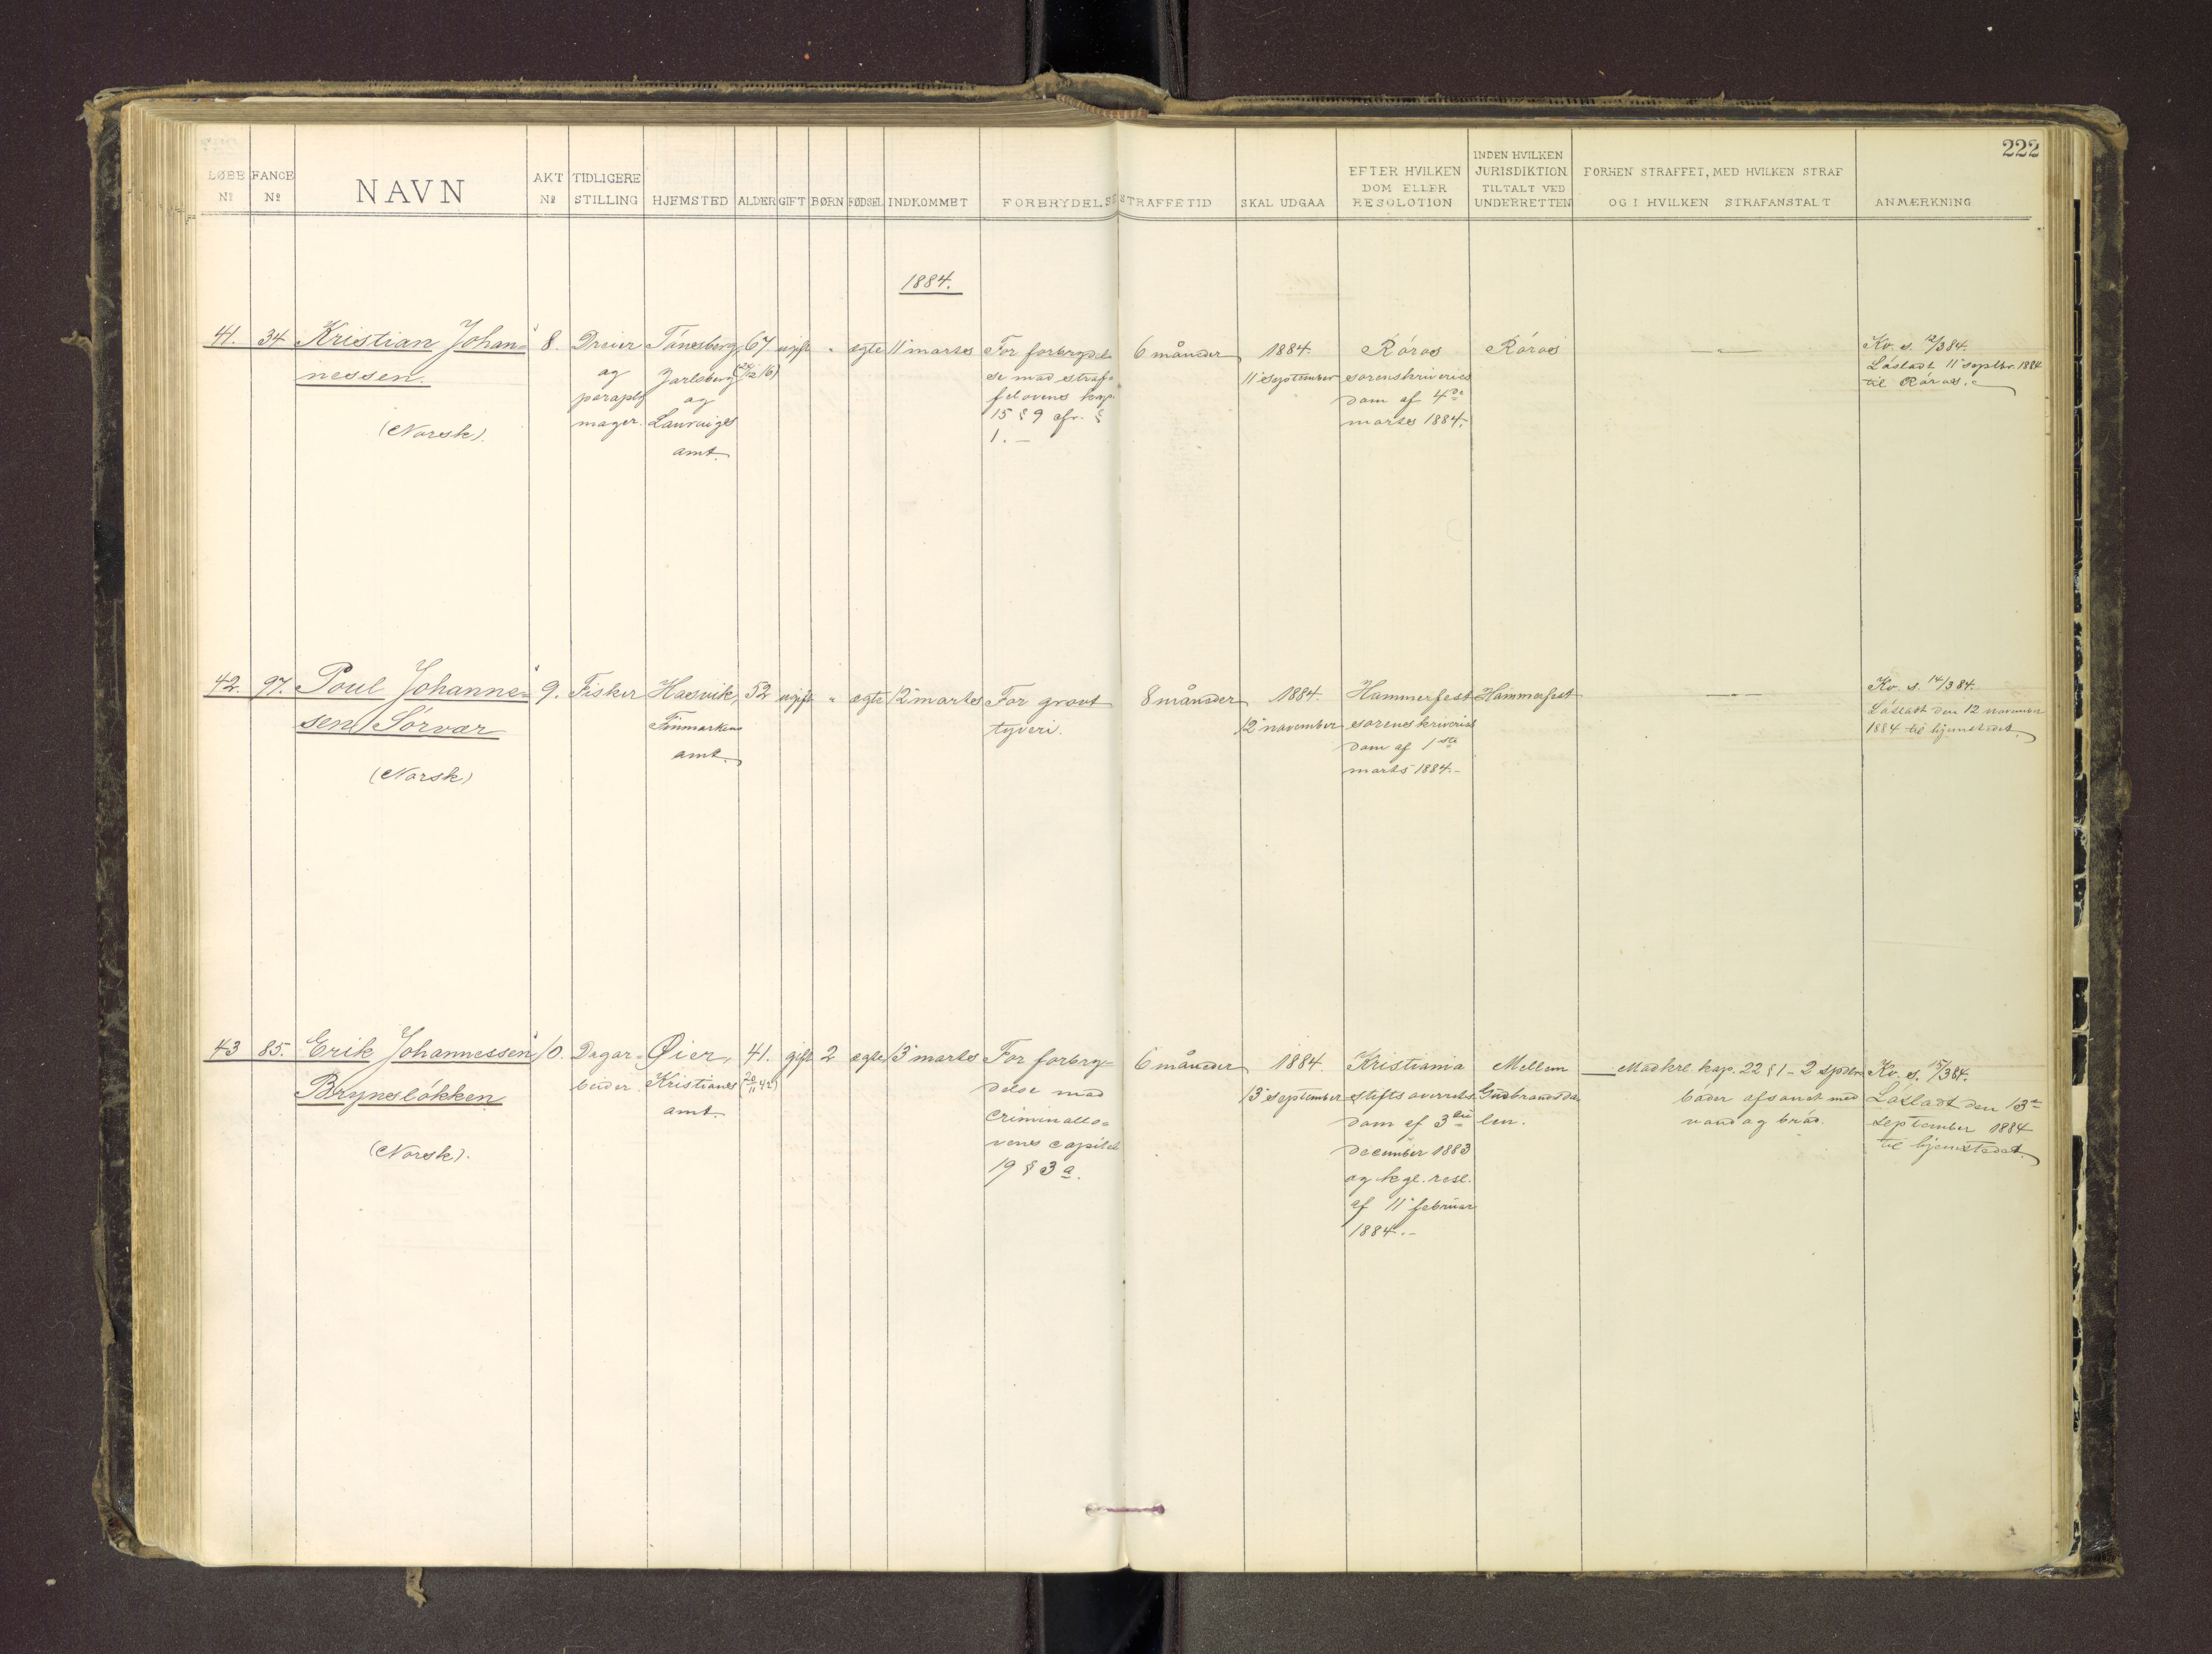 222
LØBE Nº
FANGE Nº
NAVN
AKT Nº
TIDLIGERE STILLING
HJEMSTED
ALDER
GIFT
BØRN
FØDSEL
INDKOMMET
FORBRYDELSE
STRAFFETID
SKAL UDGAA
EFTER HVILKEN DOM ELLER RESOLOTION
INDEN HVILKEN JURISDIKTION TILTALT VED UNDERRETTEN
FORHEN STRAFFET, MED HVILKEN STRAF OG I HVILKEN STRAFANSTALT
ANMÆRKNING
1884.
41.
34
Kristian Johan=
nessen.
(Norsk).
8.
Dreier
og
paraply
mager.
Tónsberg,
Jarlsberg
og
Laurviges
amt.
67
(24/12 16)
ugift
"
ægte
11 martes
For forbrydel
se mod straf=
felovens kap.
15 § 9 cfr. §
1. —
6 måneder
1884.
11 september
Róros
sorenskriveries
dom af 4de
martes 1884.-
Róros
— " —
Kv. s. 12/3 84.
Lósladt 11 septbr. 1884
til Róros.
42.
97.
Poul Johanne=
sen Sórvær
(Norsk)
9.
Fisker
Hasvik,
Finmarkens
amt.
52
ugift
"
ægte
12 martes
For grovt
tyveri.
8 måneder
1884.
12 november
Hammerfest
sorenskriveries
dom af 1ste
marts 1884.-
Hammerfest
— " —
Kv. s. 14/3 84.
Lósladt den 12 november
1884 til hjemstedet.
43
85.
Erik Johannessen
Bryneslókken
(Norsk).
10.
Dagar=
beider.
Øier,
Kristians
amt.
41.
(20/11 42)
gift
2
ægte
13 martes
For forbry=
delse mod
criminallo=
vens capitel
19 § 3 a.
6 måneder
1884.
13 september
Kristiania
stifts overrets
dom af 3die
december 1883
og kgl. resl.
af 11 februar
1884.-
Mellem
Gudbrandsda
len.
Mod krl. kap. 22 § 1 - 2 spdlrs
bóder afsonet med
vand og bród.
Kv. s. 15/3 84.
Lósladt den 13de
september 1884
til hjemstedet.